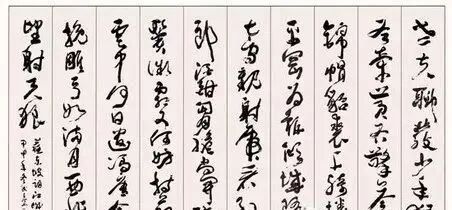 老夫聊發少年狂
左牽黃右擎蒼
錦帽貂裘千騎
平岡為報傾城隨
太守親射虎看孫
郎酒酣胸膽尚開
鬢微霜又何妨持
雲中何日遣馮唐會
挽雕弓如滿月西北
望射天狼
蘇東坡詞江城